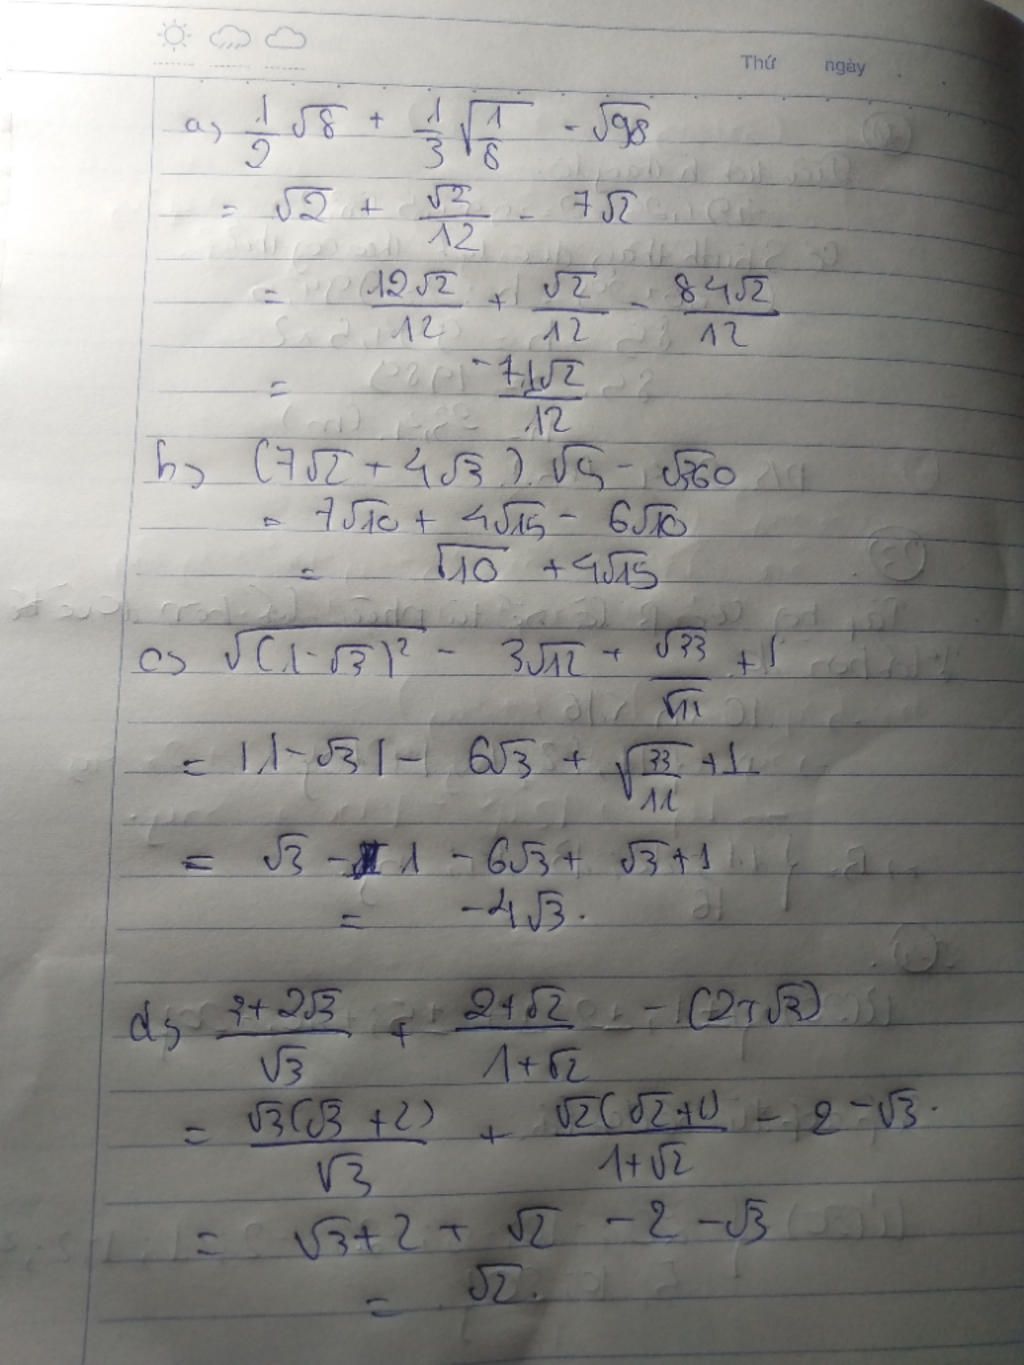 Thứ ngày
a) 1/2 √8 + 1/3 √(1/8) - √98
= √2 + √2/12 - 7√2
= 12√2/12 + √2/12 - 84√2/12
= -71√2/12
b) (7√2 + 4√3).√5 - √360
= 7√10 + 4√15 - 6√10
= √10 + 4√15
c) √((1-√3)²) - 3√12 + √33/√11 + 1
= |1-√3| - 6√3 + √(33/11) + 1
= √3 - 1 - 6√3 + √3 + 1
= -4√3.
d) (3+2√3)/√3 + (2+√2)/(1+√2) - (2+√3)
= √3(√3+2)/√3 + √2(√2+1)/(1+√2) - 2 - √3.
= √3+2 + √2 - 2 - √3
= √2.